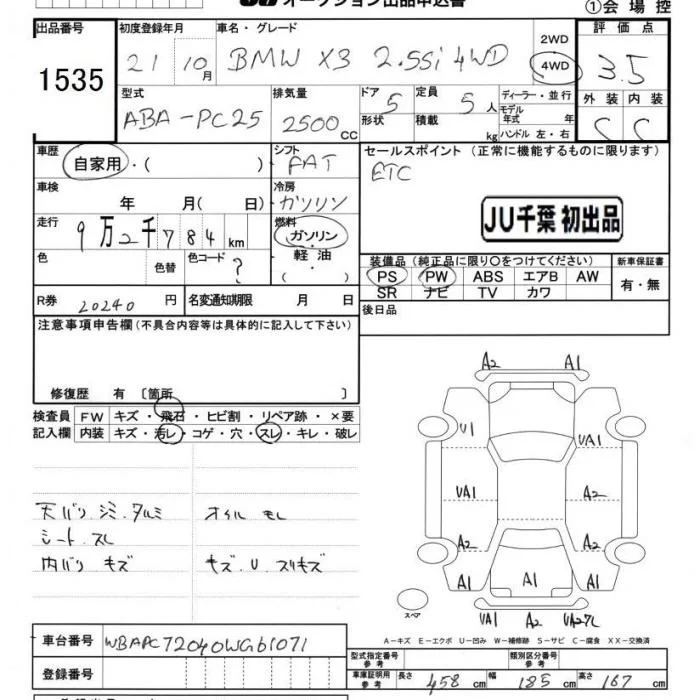 オークション出品申込書
①会場控
出品番号
1535
初度登録年月
21 10月
車名・グレード
BMW X3 2.5Si 4WD
2WD
4WD
評価点
3.5
型式
ABA-PC25
排気量
2500cc
ドア 5
形状
定員 5人
積載 kg
ディーラー・並行
モデル年式 年
ハンドル 左・右
外装 内装
C C
車歴
自家用・( )
シフト
FAT
セールスポイント(正常に機能するものに限ります)
ETC
車検
年 月( 日)
冷房
ガソリン
JU千葉 初出品
走行
9万2千784km
燃料
ガソリン
軽油
( )
色
色替
色コード ?
装備品(純正品に限り○をつけてください)
PS PW ABS エアB AW
SR ナビ TV カワ
新車保証書
有・無
R券 20240円
名変通知期限 月 日
後日品
注意事項申告欄(不具合内容等は具体的に記入して下さい)
修復歴 有 [箇所 ]
検査員記入欄
FW キズ・飛石・ヒビ割・リペア跡・×要
内装 キズ・汚レ・コゲ・穴・スレ・キレ・破レ
天バリ シミ タルミ
シート スレ
内バリ キズ
オイル モレ
キズ.U.スリキズ
A2 A1
U1 UA1
UA1 A2
A2 A2
A1 A1 A1
UA1 A2
スペア
A-キズ E-エクボ U-凹み W-補修跡 S-サビ C-腐食 XX-交換済
車台番号 WBAPC72040WG61071
登録番号
型式指定番号 参考
類別区分番号 参考
車庫証明用 参考
長さ 458cm 幅 185cm 高さ 167cm